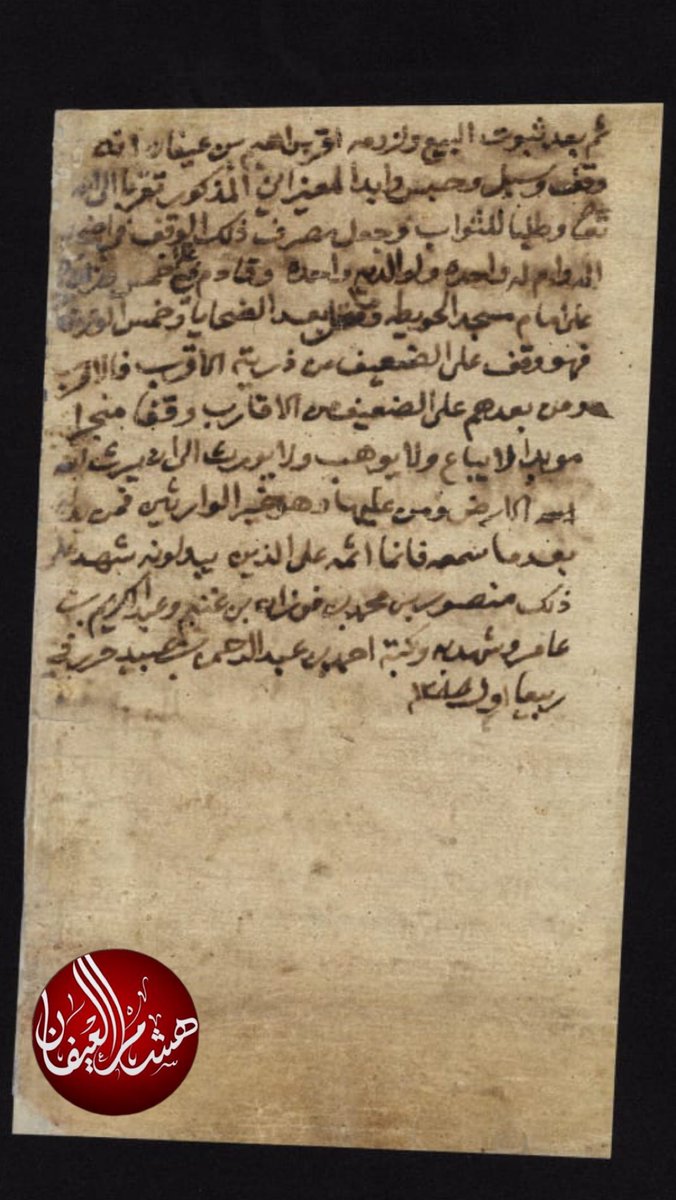 ثم بعد ثبوت البيع ولزومه اقر براهيم بن عيفان انه
وقف وسبل وحبس وابدا المذكور تقربا الى الله
تعا وطلبا للثواب وجعل مصرف ذلك الوقف في
الدوام له واحده ولوالديه واحده خمس
على امام مسجد الحويطه بعد الضحايا وخمس
فهو وقف على الضعيف من ذريته الاقرب فالاقرب
ومن بعدهم على الضعيف من الاقارب وقفا منجزا
موبدا لا يباع ولا يوهب ولا يورث الى ان يرث الله
الارض ومن عليها وهو خير الوارثين فمن بدله
بعد ما سمعه فانما اثمه على الذين يبدلونه شهد على
ذلك منصور بن محمد بن فوزان بن غنيم وعبدالكريم بن
عامر وشهد به وكتبه احمد بن عبدالرحمن بن حرر في
ربيع اول
هشام العيفان